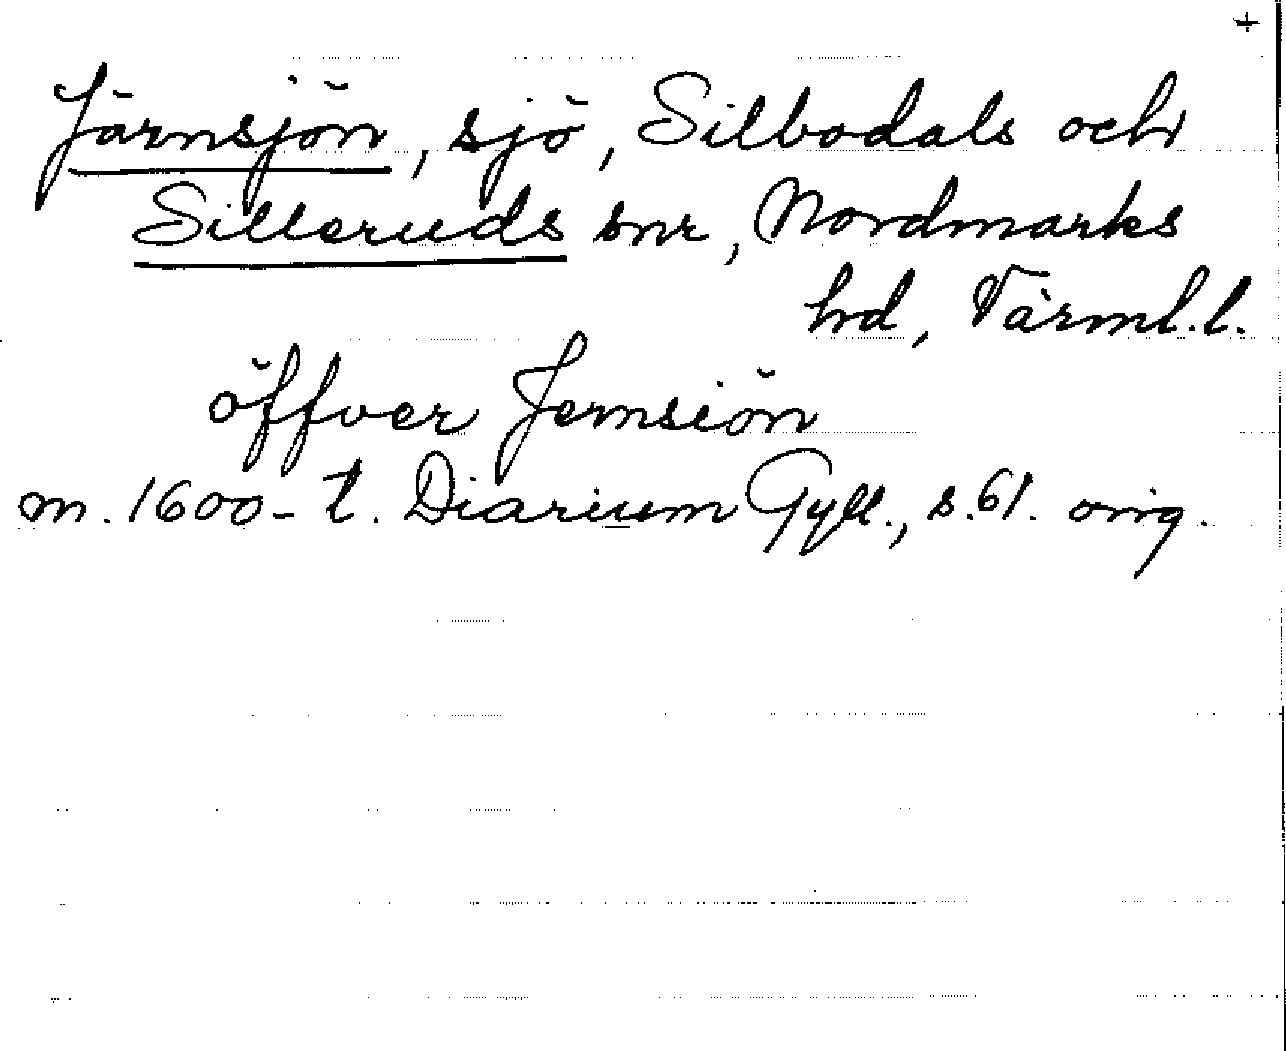 +
Järnsjön, sjö, Silbodals och
Silleruds snr, Nordmarks
hd, Värml.l.
öffver Jernsiön
m. 1600-t. Diarium Gyll., s.61. orig.